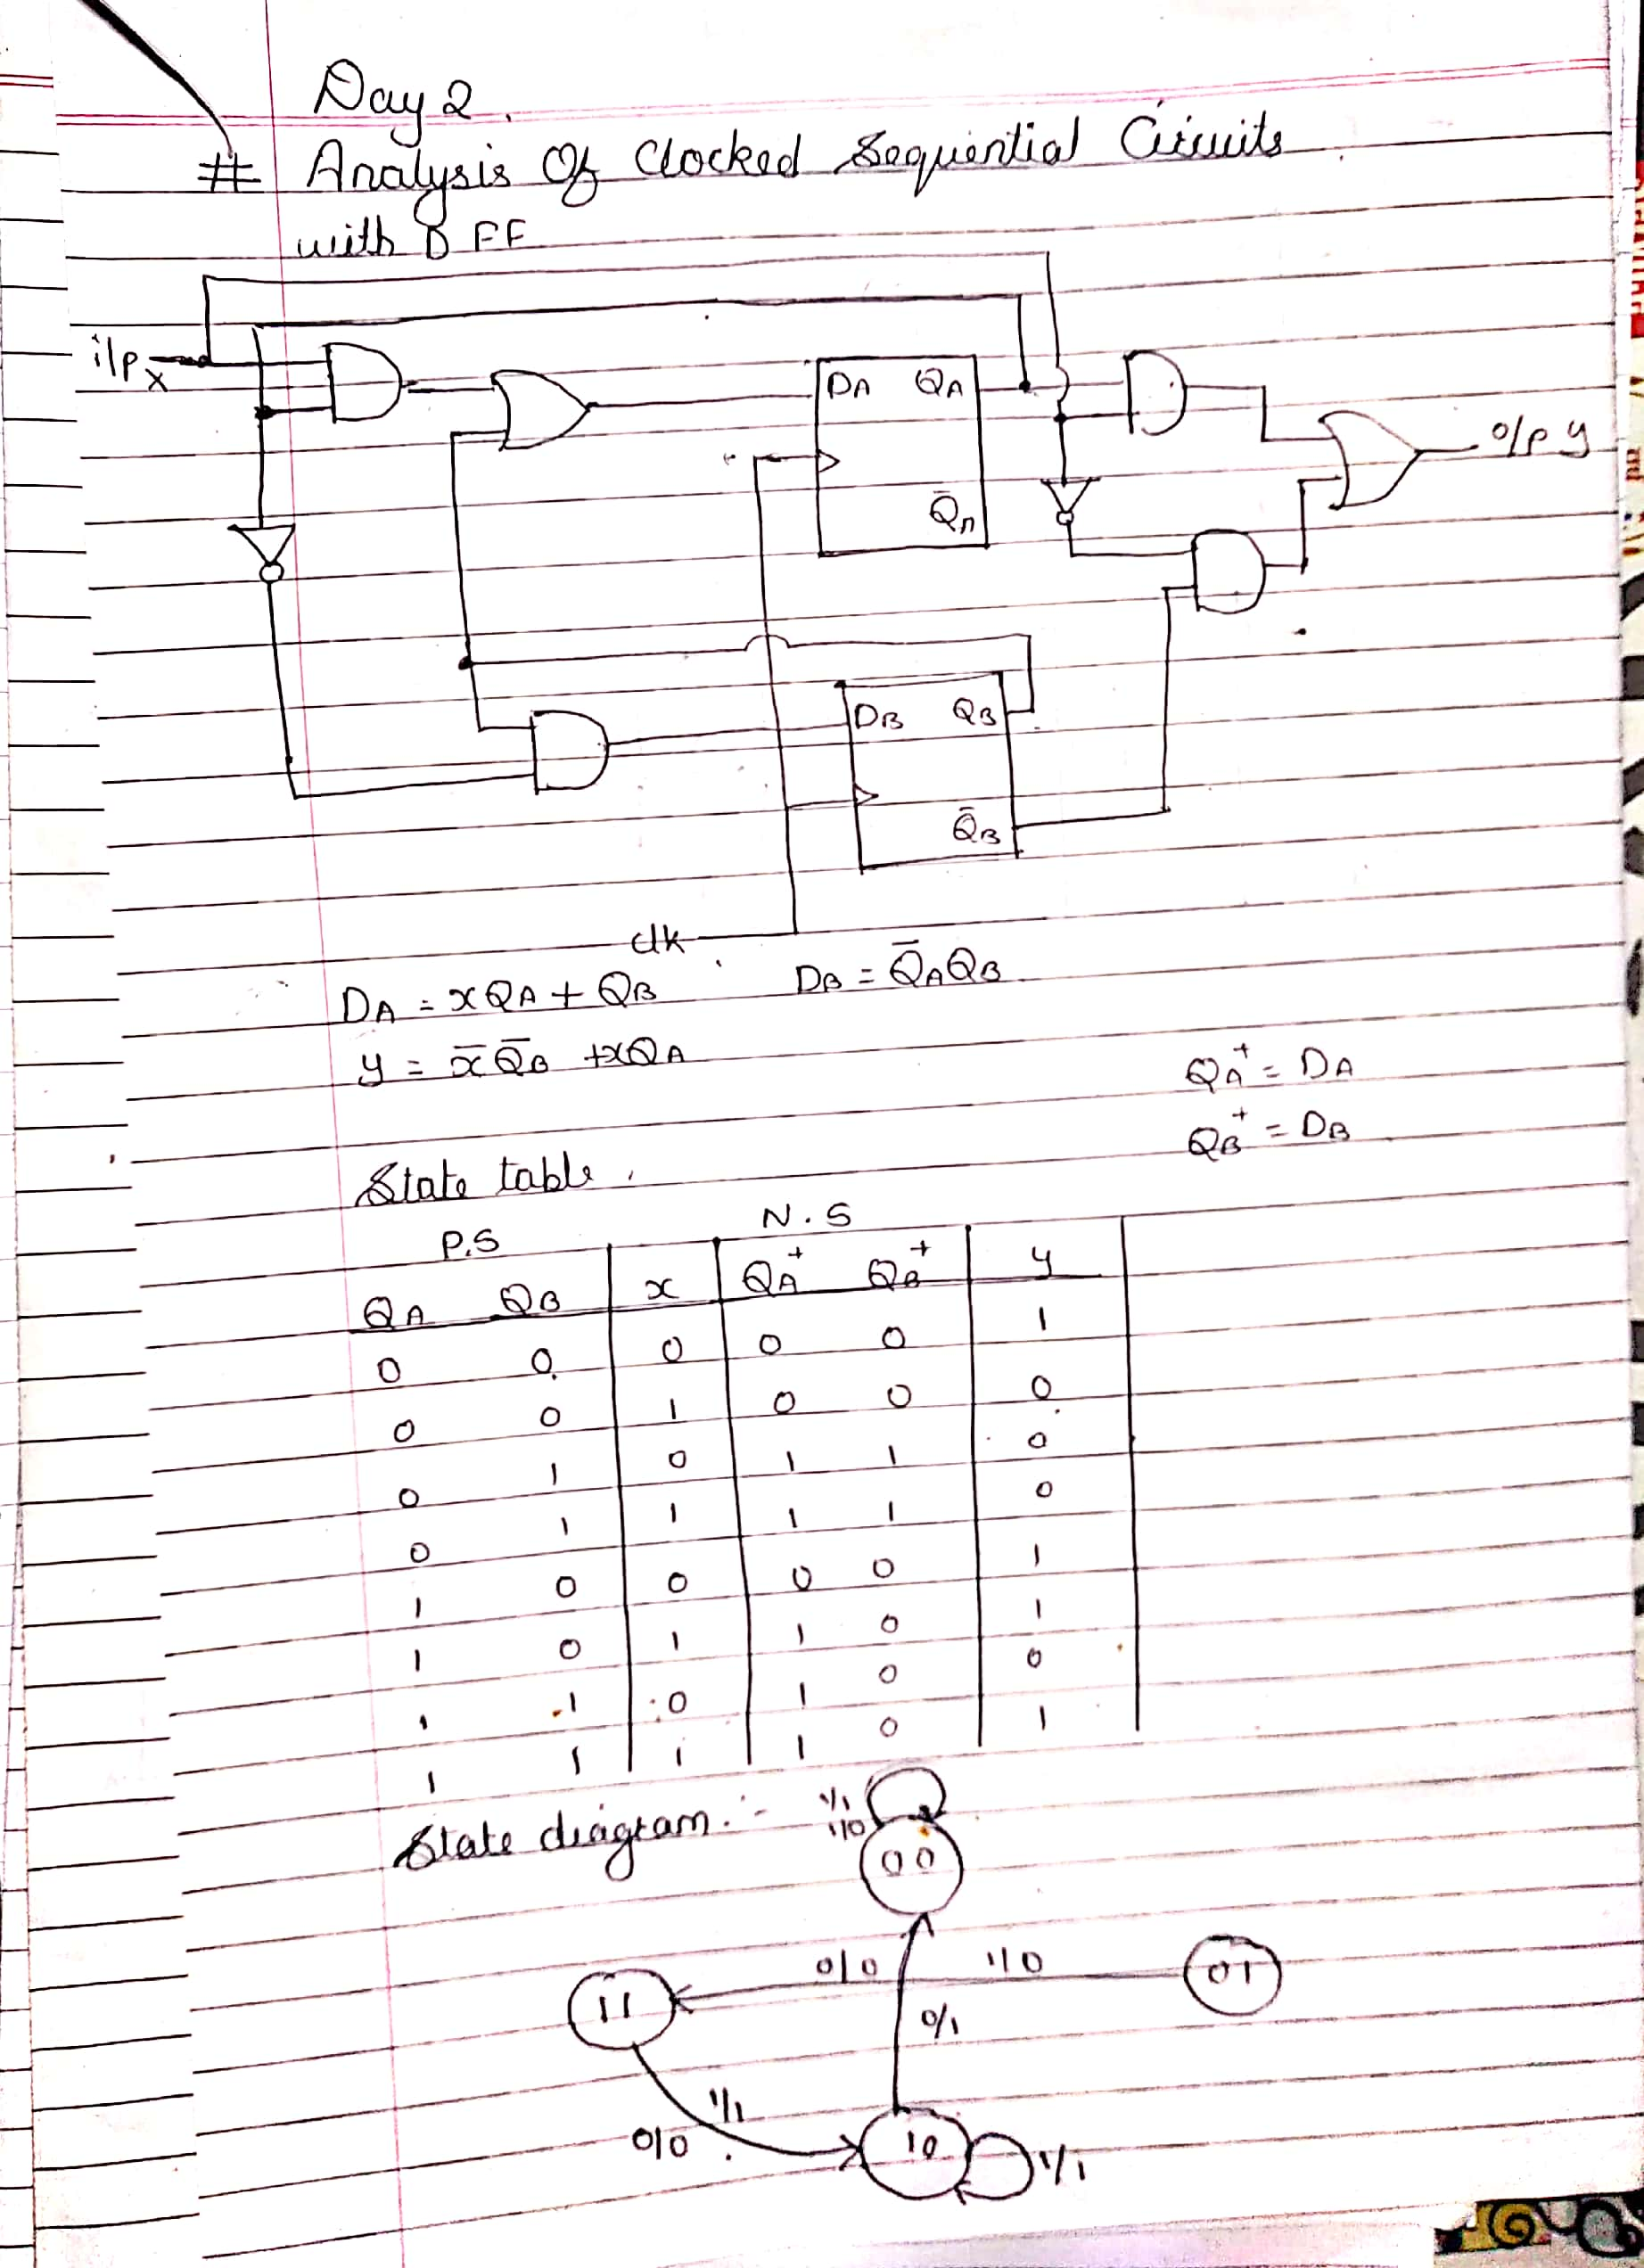 Day 2.
# Analysis Of Clocked Sequential Circuits
with D FF
i/p x
DA QA
Q̄A
o/p y
DB QB
Q̄B
clk
DA = xQA + QB DB = Q̄AQB
y = x̄ Q̄B + xQA
QA⁺ = DA
QB⁺ = DB
State table.
P.S N.S
QA QB x QA⁺ QB⁺ y
0 0 0 0 0 1
0 0 1 0 0 0
0 1 0 1 1 0
0 1 1 1 1 0
1 0 0 0 0 1
1 0 1 1 0 1
1 1 0 1 0 0
1 1 1 1 0 1
State diagram :-
1/1
1/0
00
0/0 1/0
11 01
0/1
1/1
0/0
10 1/1